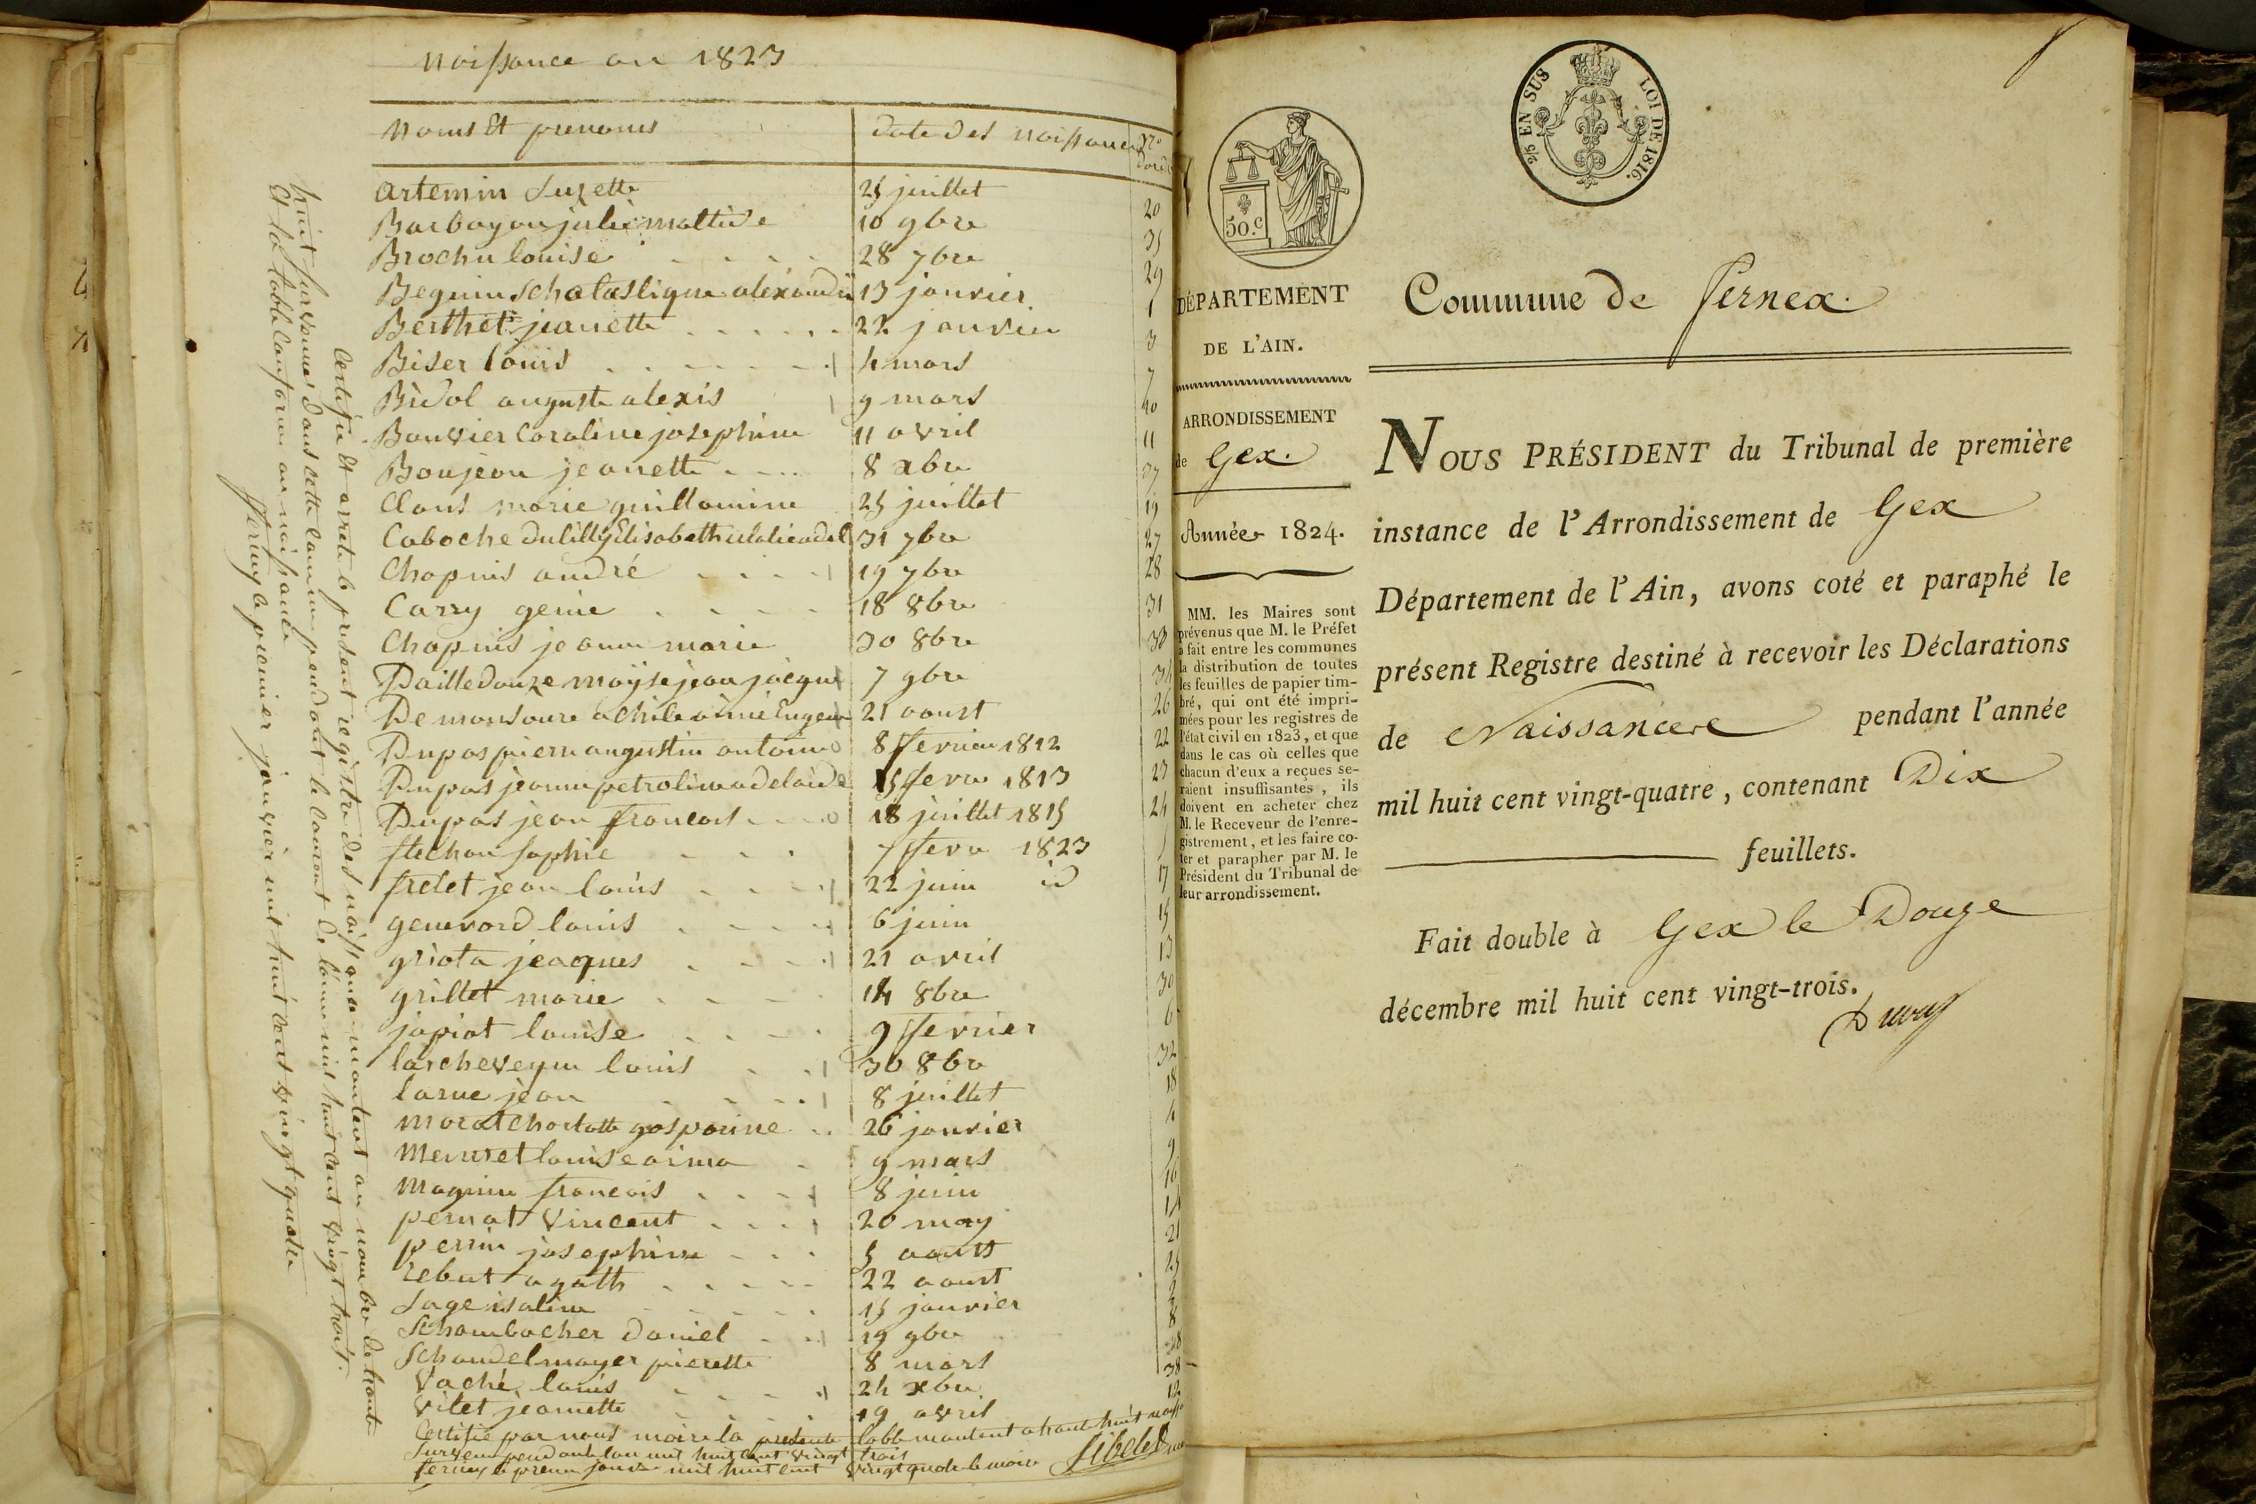 Naissance an 1823
Noms Et prenoms date des naissances No
artemin Suzette 25 juillet 20
Barbayon julie maltide 10 9bre 35
Brochu louise 28 7bre 29
Beguin Scholastique 13 janvier 1
Berthet jeanette 22 janvier 3
Biser louis 4 mars 7
Bidol auguste alexis 9 mars 10
Bouvier Caroline josephine 11 avril 11
Boujeon jeanette 8 xbre 37
Clous marie guillamine 25 juillet 19
Caboche 31 7bre 27
Chapuis andré 19 7bre 28
Carry genie 18 8bre 31
Chapuis jeanne marie 30 8bre 33
Dailledouze moyse jean jacque 7 9bre 34
Demonsoure achile 21 aoust 26
Dupas pierre augustin antoine 8 fevrier 1812 22
Dupas jeanne petroline adelaide 15 fevr 1813 23
Dupas jean francois 18 juillet 1815 24
flechon sophie 7 fevr 1823 5
frelet jean louis 22 juin id 17
genevard louis 6 juin 15
griota jeacques 21 avril 13
grillet marie 14 8bre 30
japiot louise 9 fevrier 6
larcheveque louis 30 8bre 32
larue jean 8 juillet 18
morat Charlotte gasparine 26 janvier 4
Mermet louise 9 mars 9
Magnin francois 8 juin 16
pernat Vincent 20 may 14
perrin josephine 5 aoust 21
rebut agath 22 aoust 25
Sage isaline 15 janvier 2
Schambacher Daniel 19 9bre
Schaudelmayer pierette 8 mars 8
Vaché louis 24 xbre 38
Vilet jeanette 19 avril 12
Certifié par nous maire la presente table montent a trante huit
Survenu pendant lan mil huit cent vingt trois
ferney le premier janvier mil huit cent vingt quatre le maire
Certifié et arreté le present registre des naissances montent au nombre de trante
huit survenues dans cette commune pendant le courant de lanne mil huit cent vingt trois.
Et la table conforme au naissance
ferney le premier janvier mil huit cent vingt quatre
2/5 EN SUS LOI DE 1816.
50.c
DÉPARTEMENT
DE L'AIN.
ARRONDISSEMENT
de Gex.
Année 1824.
MM. les Maires sont
prévenus que M. le Préfet
a fait entre les communes
la distribution de toutes
les feuilles de papier tim-
bré, qui ont été impri-
mées pour les registres de
l'état civil en 1823, et que
dans le cas où celles que
chacun d'eux a reçues se-
raient insuffisantes, ils
doivent en acheter chez
M. le Receveur de l'enre-
gistrement, et les faire co-
ter et parapher par M. le
Président du Tribunal de
leur arrondissement.
Commune de Fernex.
NOUS PRÉSIDENT du Tribunal de première
instance de l'Arrondissement de Gex
Département de l'Ain, avons coté et paraphé le
présent Registre destiné à recevoir les Déclarations
de Naissance pendant l'année
mil huit cent vingt-quatre, contenant Dix
feuillets.
Fait double à Gex le Douze
décembre mil huit cent vingt-trois.